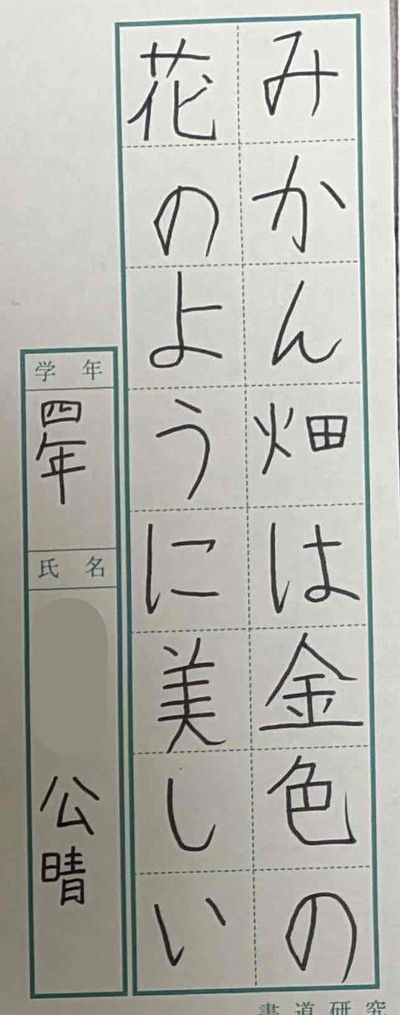 みかん畑は金色の
花のように美しい
学年
四年
氏名
公晴
書道研究